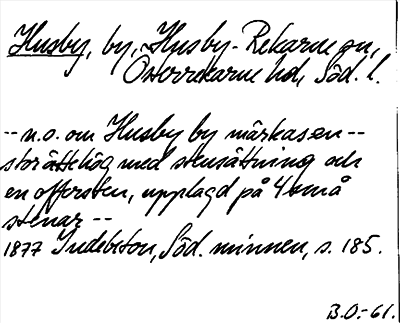 Husby, by, Husby-Rekarne sn,
Österrekarne hd, Söd. l.
-- n.o. om Husby by märkas en --
stor ättehög med stensättning och
en offersten, upplagd på 4 små
stenar --
1877 Indebetou, Söd. minnen, s. 185.
B.O:-61.